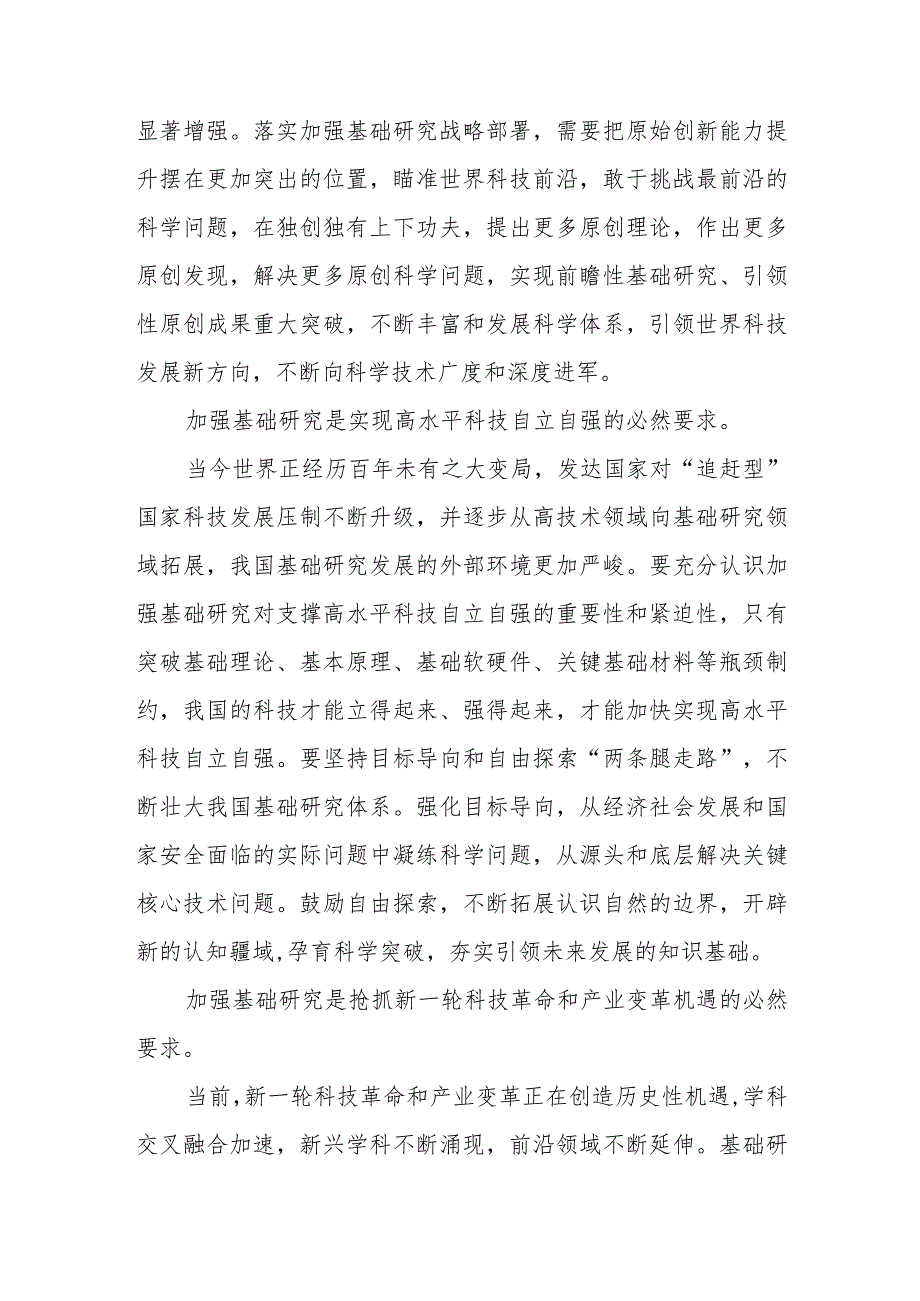 显著增强。落实加强基础研究战略部署，需要把原始创新能力提
升摆在更加突出的位置，瞄准世界科技前沿，敢于挑战最前沿的
科学问题，在独创独有上下功夫，提出更多原创理论，作出更多
原创发现，解决更多原创科学问题，实现前瞻性基础研究、引领
性原创成果重大突破，不断丰富和发展科学体系，引领世界科技
发展新方向，不断向科学技术广度和深度进军。
加强基础研究是实现高水平科技自立自强的必然要求。
当今世界正经历百年未有之大变局，发达国家对“追赶型”
国家科技发展压制不断升级，并逐步从高技术领域向基础研究领
域拓展，我国基础研究发展的外部环境更加严峻。要充分认识加
强基础研究对支撑高水平科技自立自强的重要性和紧迫性，只有
突破基础理论、基本原理、基础软硬件、关键基础材料等瓶颈制
约，我国的科技才能立得起来、强得起来，才能加快实现高水平
科技自立自强。要坚持目标导向和自由探索“两条腿走路”，不
断壮大我国基础研究体系。强化目标导向，从经济社会发展和国
家安全面临的实际问题中凝练科学问题，从源头和底层解决关键
核心技术问题。鼓励自由探索，不断拓展认识自然的边界，开辟
新的认知疆域,孕育科学突破，夯实引领未来发展的知识基础。
加强基础研究是抢抓新一轮科技革命和产业变革机遇的必然
要求。
当前,新一轮科技革命和产业变革正在创造历史性机遇,学科
交叉融合加速，新兴学科不断涌现，前沿领域不断延伸。基础研